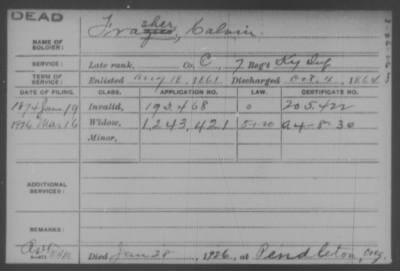 DEAD
Frasher, Calvin.
NAME OF SOLDIER:
SERVICE: Late rank, Co. C, 7 Reg't Ky Inf
TERM OF SERVICE: Enlisted Aug 18, 1861 Discharged Oct. 4, 1864
DATE OF FILING. CLASS. APPLICATION NO. LAW. CERTIFICATE NO.
1874 Jan 19 Invalid, 192,468 0 205,422
1926 Mar 16 Widow, 1,243,421 A-4-8-30
Minor,
ADDITIONAL SERVICES:
REMARKS:
Died Jan 28, 1926, at Pendleton, Oreg